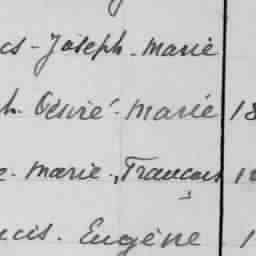 cs-Joseph-Marie
h. Désiré-Marie 18
e-Marie-, François 1
ncis. Eugène 1